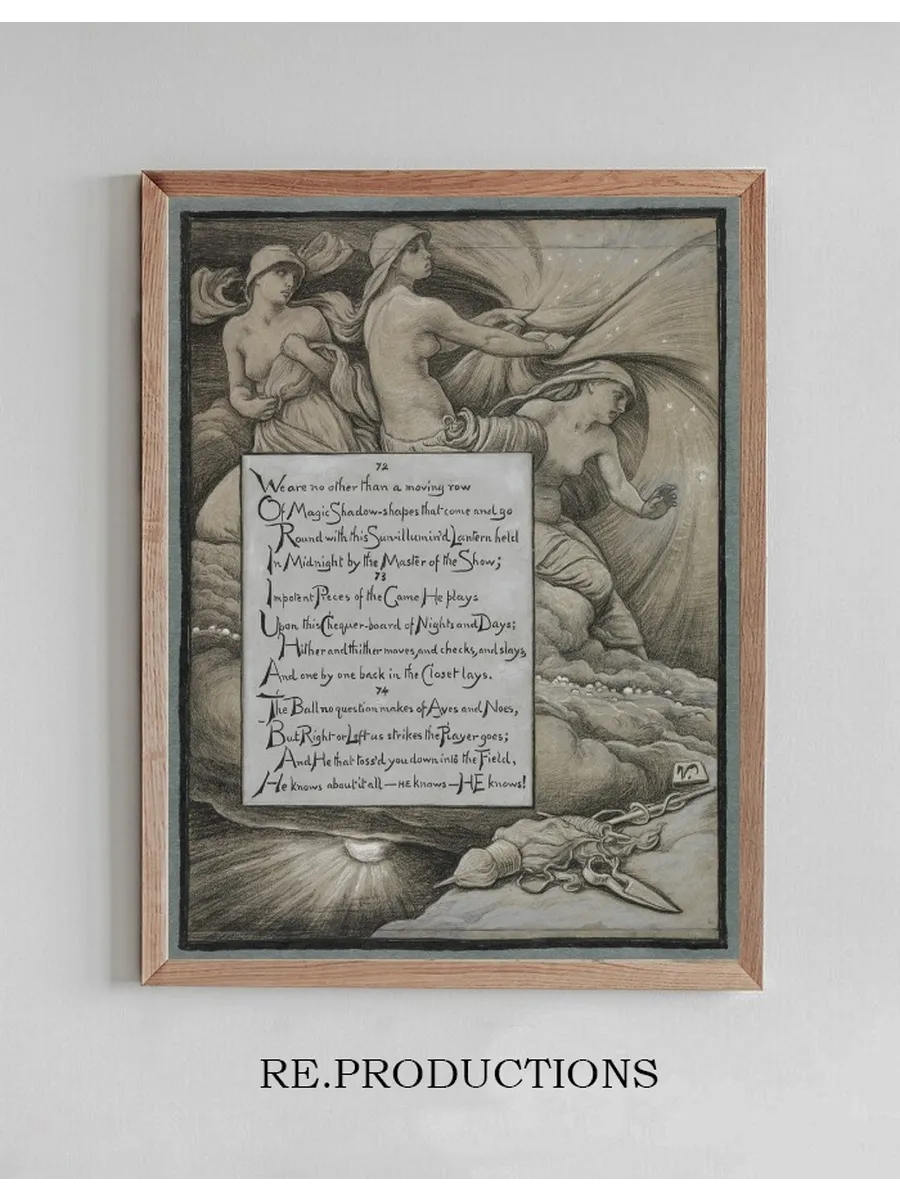 72
We are no other than a moving row
Of Magic Shadow-shapes that come and go
Round with this Sun-illumin'd Lantern held
In Midnight by the Master of the Show;
73
Impotent Pieces of the Game He plays
Upon this Chequer-board of Nights and Days;
Hither and thither moves, and checks, and slays,
And one by one back in the Closet lays.
74
The Ball no question makes of Ayes and Noes,
But Right or Left as strikes the Player goes;
And He that toss'd you down into the Field,
He knows about it all — HE knows — HE knows!
V
RE.PRODUCTIONS